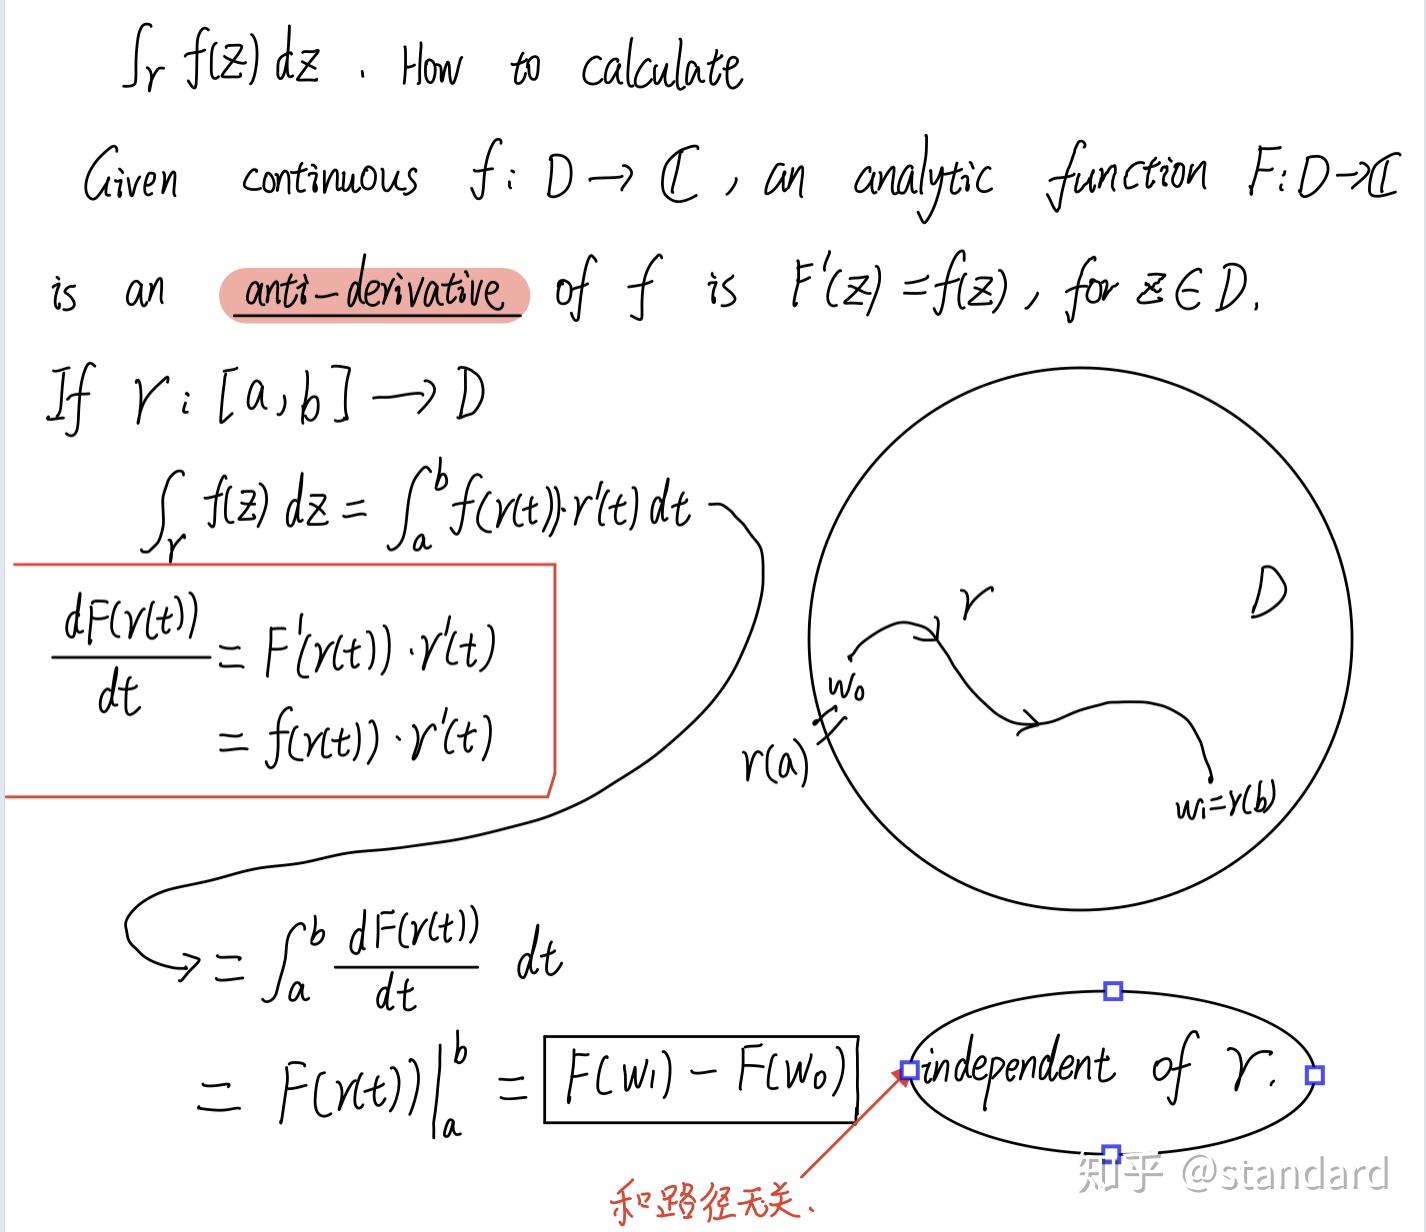 ∫_γ f(z) dz . How to calculate
Given continuous f: D → ℂ, an analytic function F: D→ℂ
is an anti-derivative of f is F'(z) = f(z), for z ∈ D.
If γ: [a,b] → D
∫_γ f(z) dz = ∫_a^b f(γ(t))·γ'(t) dt
dF(γ(t))/dt = F'(γ(t))·γ'(t)
= f(γ(t))·γ'(t)
γ
D
w₀
γ(a)
w₁=γ(b)
= ∫_a^b dF(γ(t))/dt dt
= F(γ(t))|_a^b = F(w₁) − F(w₀)
independent of γ.
和路径无关.
知乎 @standard